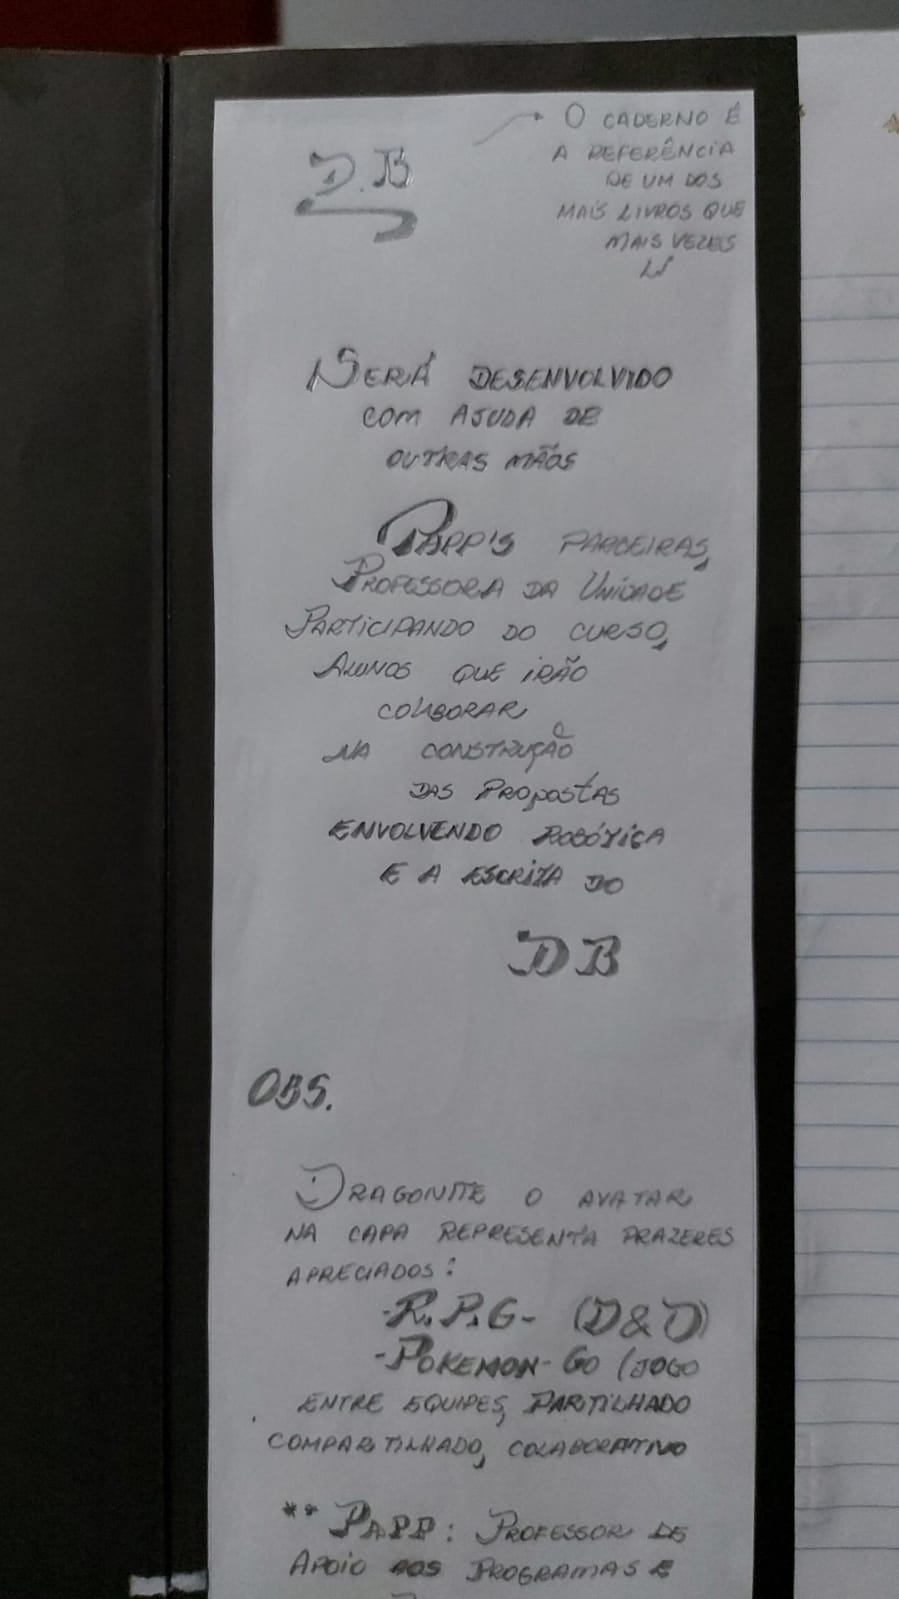 D.B
O CADERNO É
A REFERÊNCIA
DE UM DOS
MAIS LIVROS QUE
MAIS VEZES
LI
SERÁ DESENVOLVIDO
COM AJUDA DE
OUTRAS MÃOS
PAPP'S PARCEIRAS,
PROFESSORA DA UNIDADE
PARTICIPANDO DO CURSO,
ALUNOS QUE IRÃO
COLABORAR
NA CONSTRUÇÃO
DAS PROPOSTAS
ENVOLVENDO ROBÓTICA
E A ESCRITA DO
DB
OBS.
DRAGONITE O AVATAR
NA CAPA REPRESENTA PRAZERES
APRECIADOS:
-R.P.G- (D&D)
-POKEMON-GO (JOGO
ENTRE EQUIPES, PARTILHADO
COMPARTILHADO, COLABORATIVO
** PAPP: PROFESSOR DE
APOIO AOS PROGRAMAS E